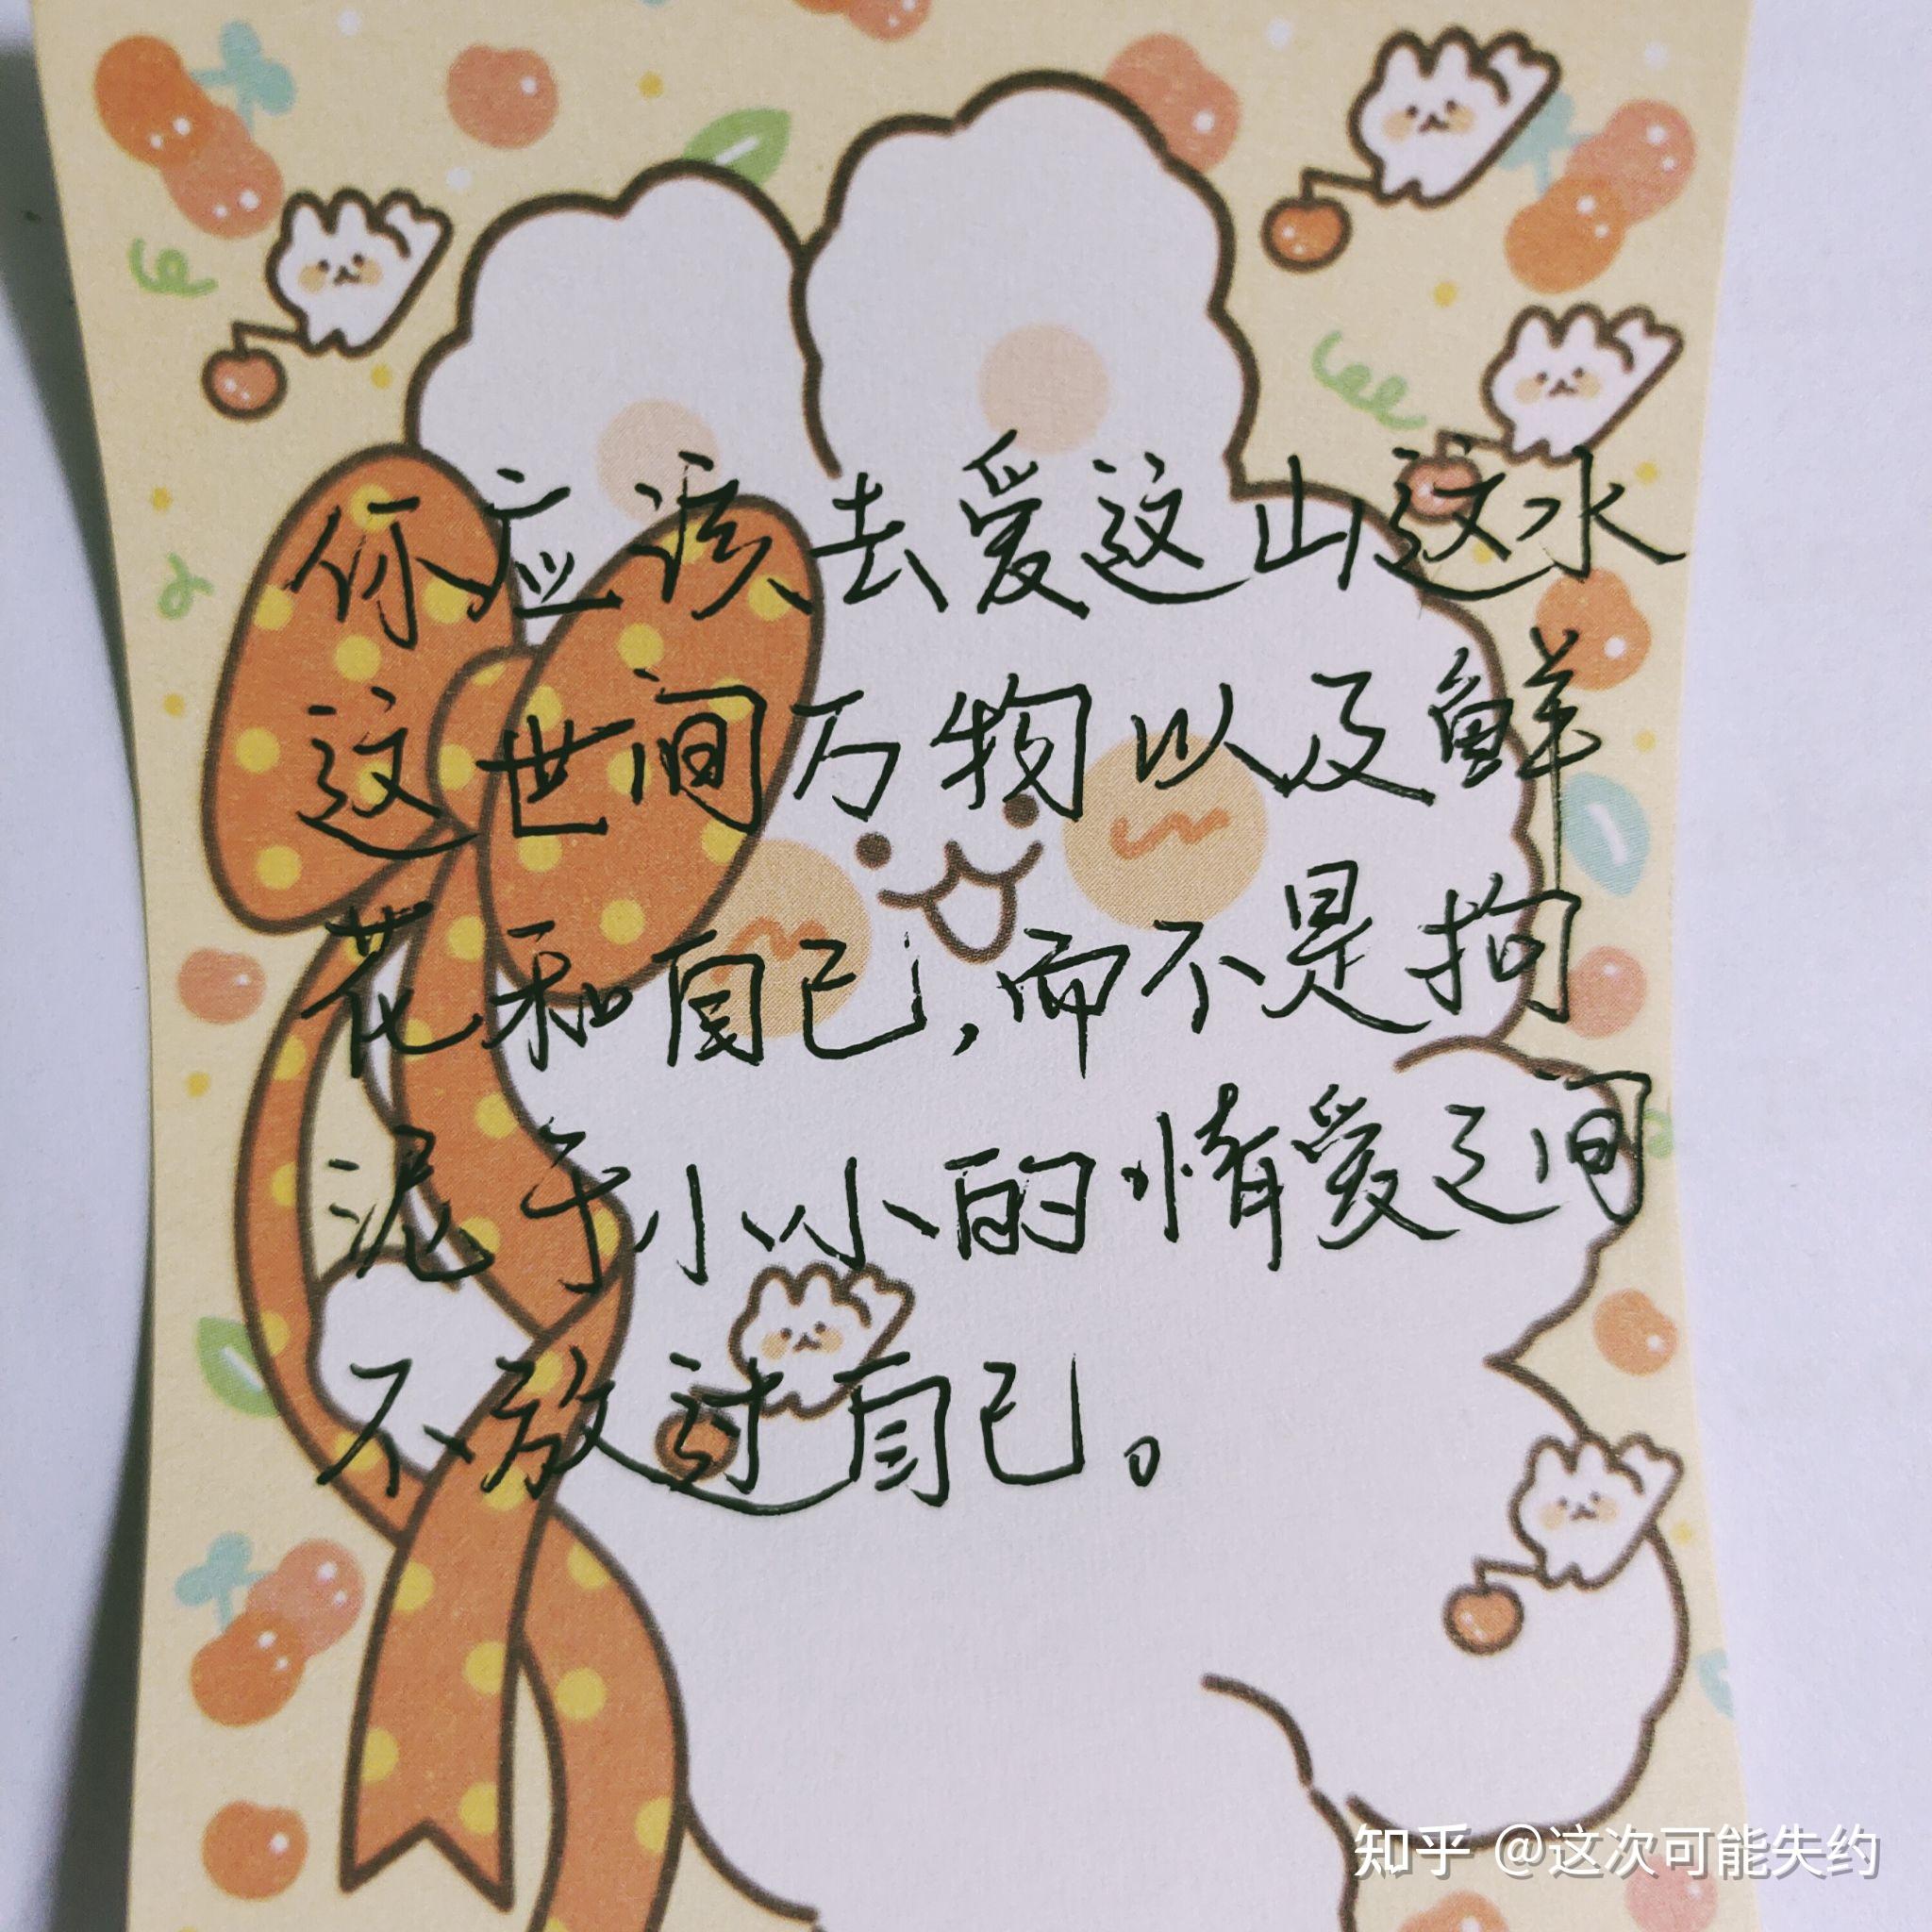 你应该去爱这山这水
这世间万物以及鲜
花和自己,而不是拘
泥于小小的情爱之间
不放过自己。
知乎 @这次可能失约